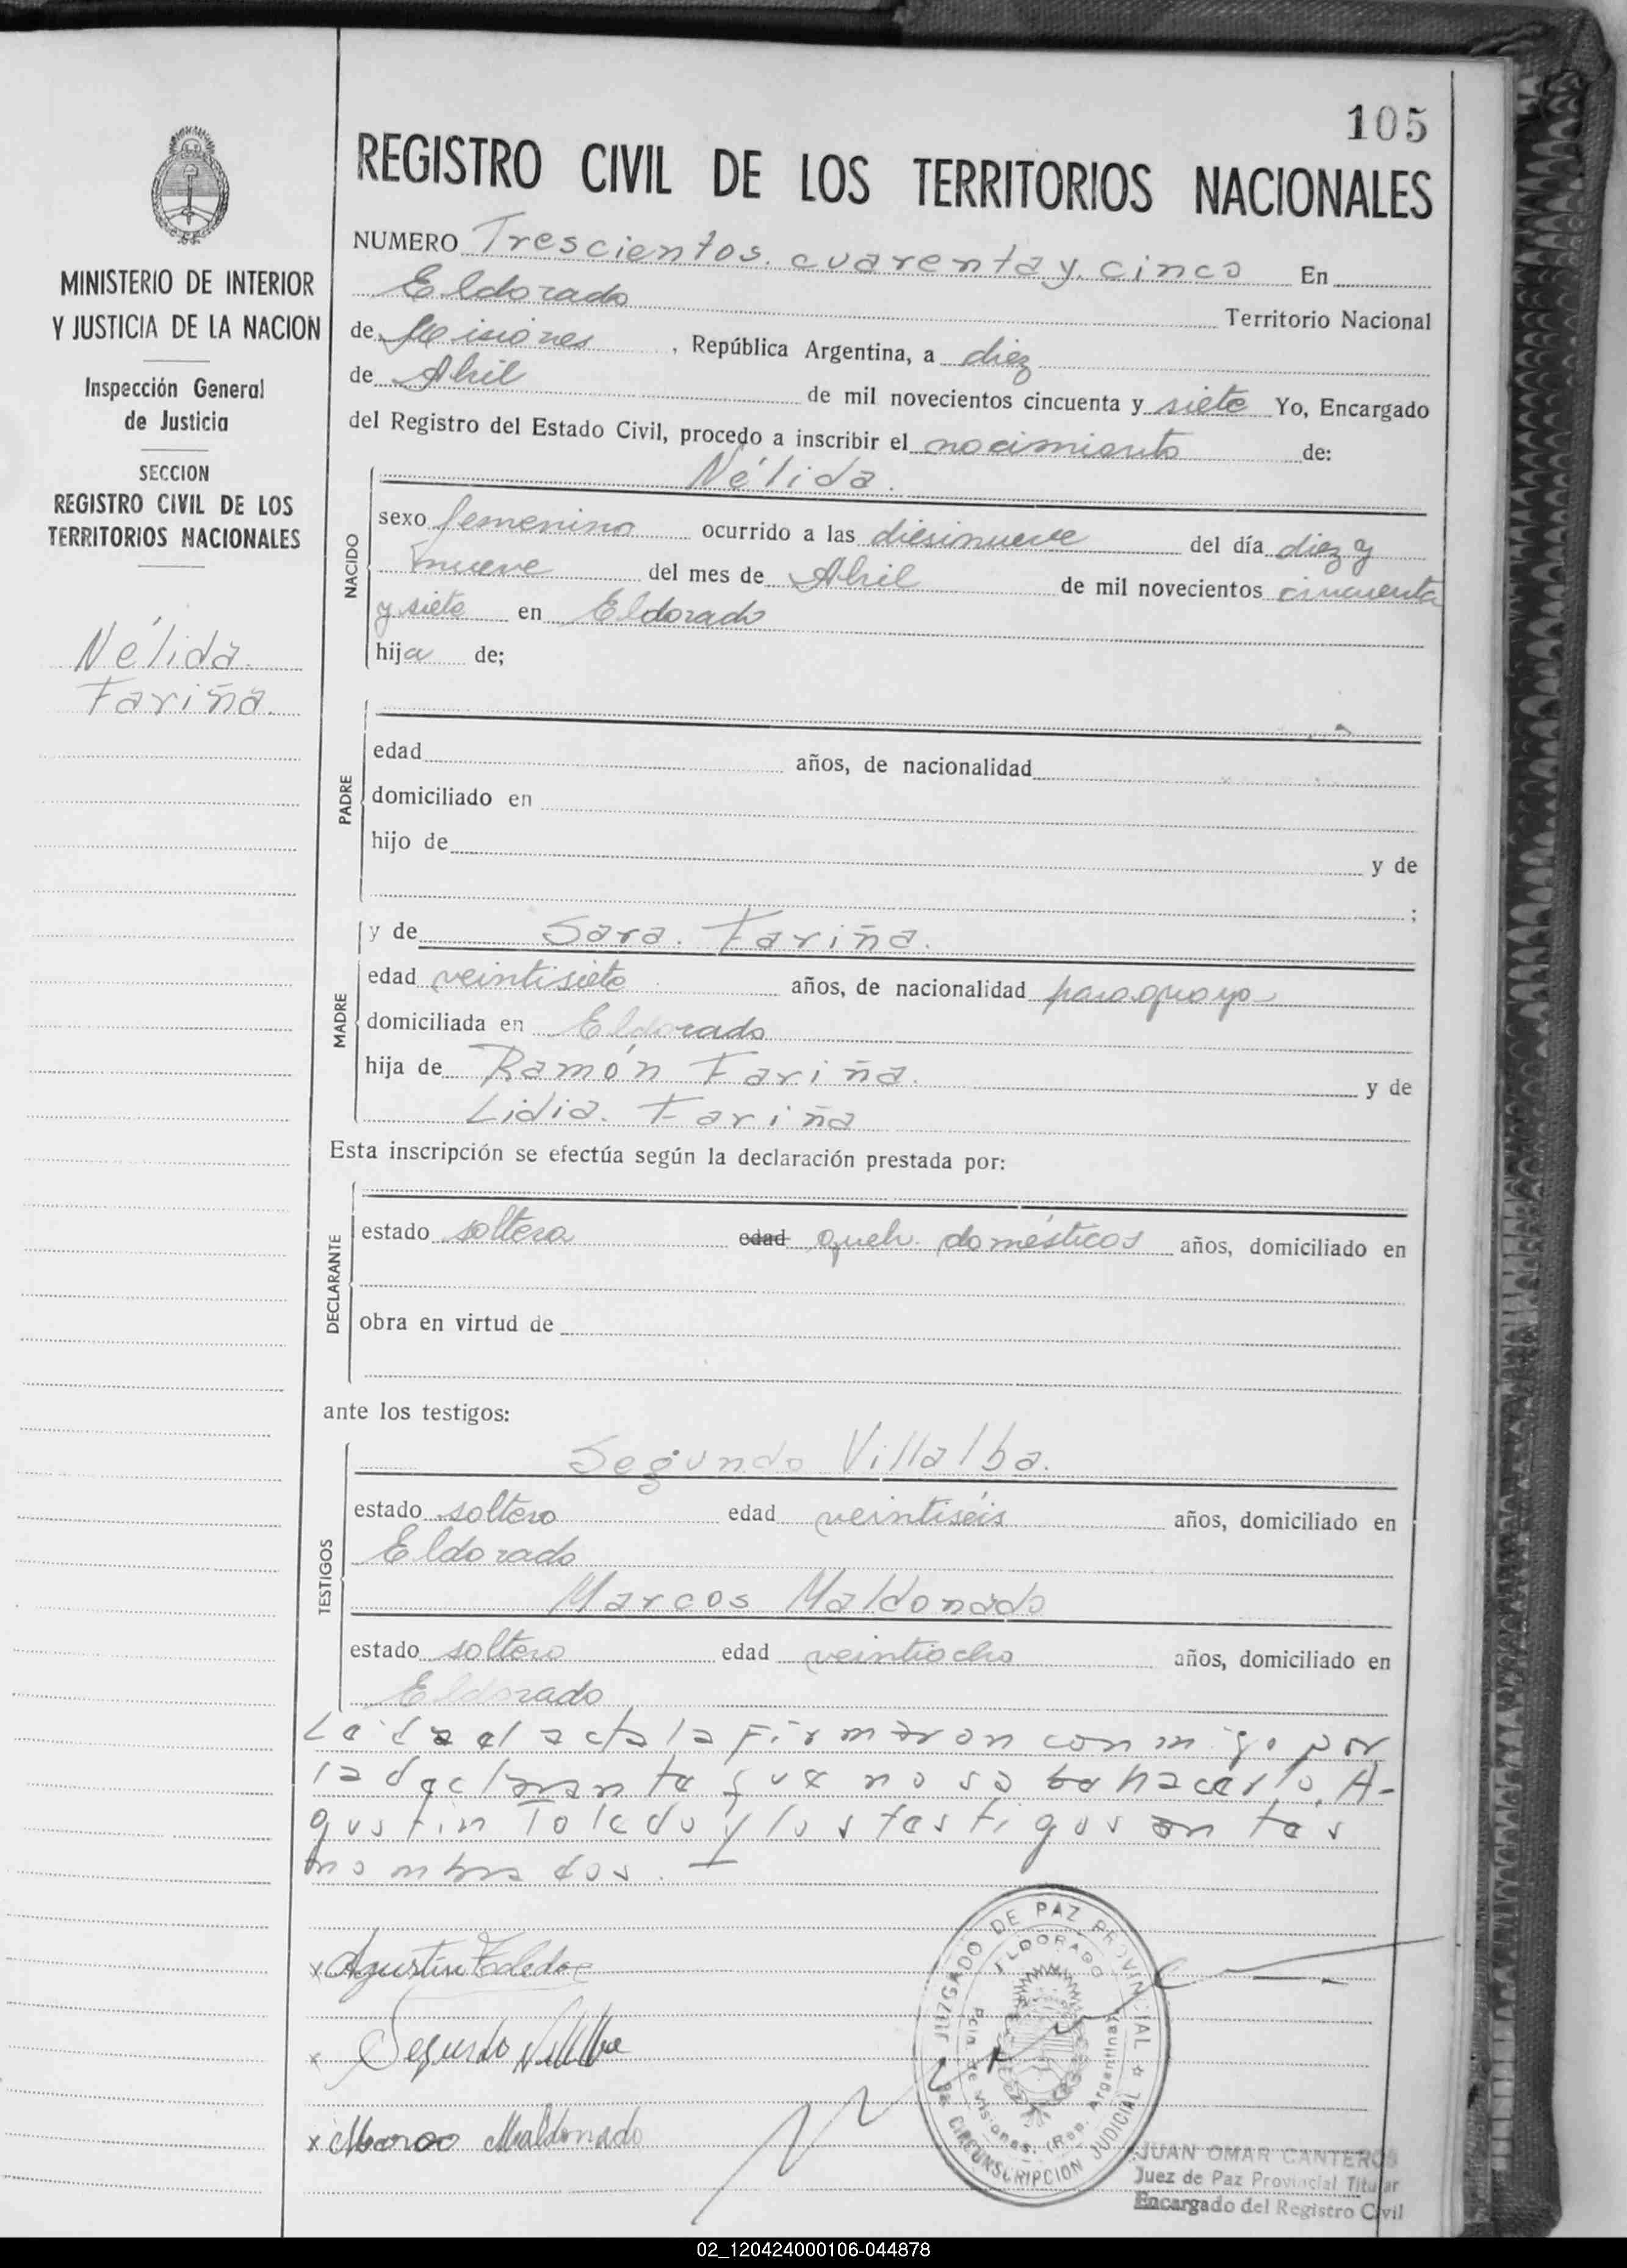 105
REGISTRO CIVIL DE LOS TERRITORIOS NACIONALES
MINISTERIO DE INTERIOR
Y JUSTICIA DE LA NACION
Inspección General
de Justicia
SECCION
REGISTRO CIVIL DE LOS
TERRITORIOS NACIONALES
Nélida
Fariña.
NUMERO Trescientos cuarenta y cinco En
Eldorado Territorio Nacional
de Misiones, República Argentina, a diez
de Abril de mil novecientos cincuenta y siete Yo, Encargado
del Registro del Estado Civil, procedo a inscribir el nacimiento de:
Nélida.
NACIDO
sexo femenino ocurrido a las diesinueve del día diez y
nueve del mes de Abril de mil novecientos cincuenta
y siete en Eldorado
hija de;
PADRE
edad años, de nacionalidad
domiciliado en
hijo de y de
;
y de Sara. Fariña.
MADRE
edad veintisiete años, de nacionalidad paraguaya
domiciliada en Eldorado
hija de Ramón Fariña. y de
Lidia. Fariña
Esta inscripción se efectúa según la declaración prestada por:
DECLARANTE
estado soltera edad queh. domésticos años, domiciliado en
obra en virtud de
ante los testigos:
TESTIGOS
Segundo Villalba.
estado soltero edad veintiséis años, domiciliado en
Eldorado
Marcos Maldonado
estado soltero edad veintiocho años, domiciliado en
Eldorado
Leída el acta la firmaron conmigo por
la declarante que no sabe hacerlo, A-
gustin Toledo y los testigos antes
nombrados. —
x Agustin Toledo
x Segundo Villalba
x Marco Maldonado
JUZGADO DE PAZ PROVINCIAL
ELDORADO
Pcia. de Misiones. (Rep. Argentina)
CIRCUNSCRIPCION JUDICIAL
JUAN OMAR CANTEROS
Juez de Paz Provincial Titular
Encargado del Registro Civil
02_120424000106-044878